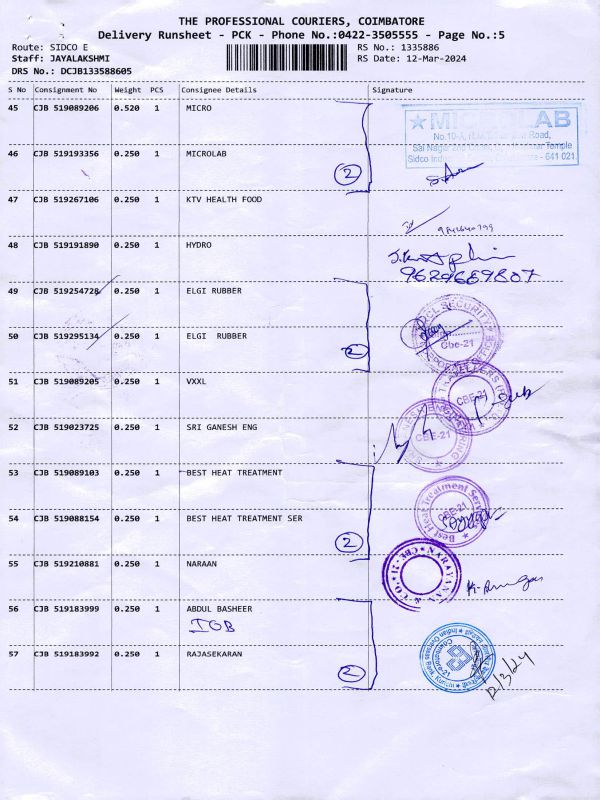 THE PROFESSIONAL COURIERS, COIMBATORE
Delivery Runsheet - PCK - Phone No.:0422-3505555 - Page No.:5
Route: SIDCO E
RS No.: 1335886
Staff: JAYALAKSHMI
RS Date: 12-Mar-2024
DRS No.: DCJB133588605
S No Consignment No Weight PCS Consignee Details Signature
45 CJB 519089206 0.520 1 MICRO
MICROLAB
No.10-A, Road,
Sai Nagar Temple
Sidco - 641 021
46 CJB 519193356 0.250 1 MICROLAB
2
47 CJB 519267106 0.250 1 KTV HEALTH FOOD
48 CJB 519191890 0.250 1 HYDRO
9629689807
49 CJB 519254728 0.250 1 ELGI RUBBER
SECURITY
Cbe-21
50 CJB 519295134 0.250 1 ELGI RUBBER
2
51 CJB 519089205 0.250 1 VXXL
CBE-21
52 CJB 519023725 0.250 1 SRI GANESH ENG
CBE-21
53 CJB 519089103 0.250 1 BEST HEAT TREATMENT
Best Heat Treatment
CBE-21
54 CJB 519088154 0.250 1 BEST HEAT TREATMENT SER
2
55 CJB 519210881 0.250 1 NARAAN
NARAYANAN & CO. CBE-21
56 CJB 519183999 0.250 1 ABDUL BASHEER
IOB
Indian Overseas Bank
Coimbatore-21
57 CJB 519183992 0.250 1 RAJASEKARAN
2
12/3/24